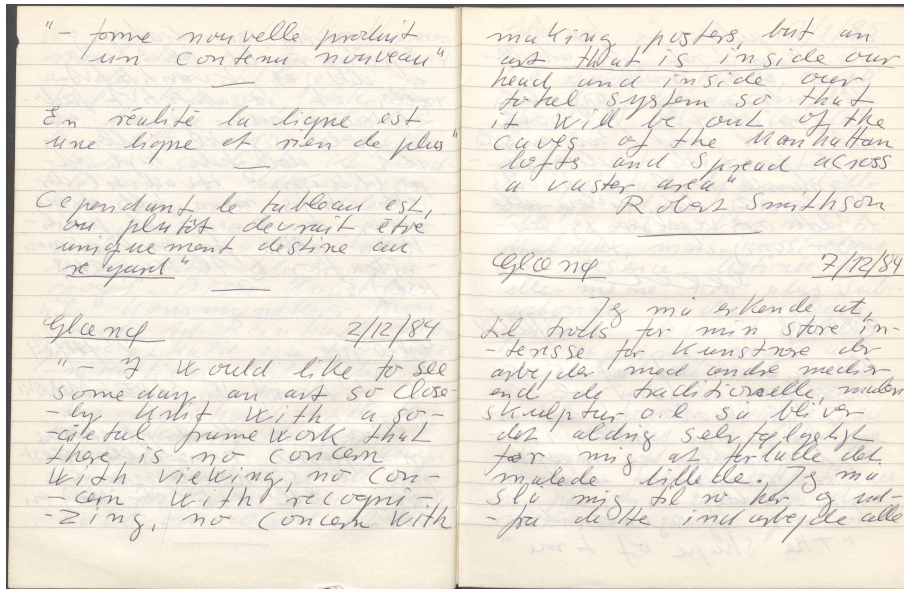 "- forme nouvelle produit
un contenu nouveau"
En réalité la ligne est
une ligne et rien de plus"
Cependant le tableau est,
ou plutôt devrait être
uniquement destiné au
regard"
Glænø 2/12/84
"- I would like to see
someday an art so close-
-ly knit with a so-
-cietal framework that
there is no concern
with viewing, no con-
-cern with recogni-
-zing, no concern with
making posters, but an
art that is inside our
head and inside our
total system so that
it will be out of the
caves of the Manhattan
lofts and spread across
a vaster area"
Robert Smithson
Glænø 7/12/84
Jeg må erkende at,
til trods for min store in-
-teresse for kunstnere der
arbejder med andre medier
end de traditionelle, maleri
skulptur o.l. så bliver
det aldrig selvfølgeligt
for mig at forlade det
malede billede. Jeg må
slå mig til ro her og ud-
-fra dette indarbejde alle